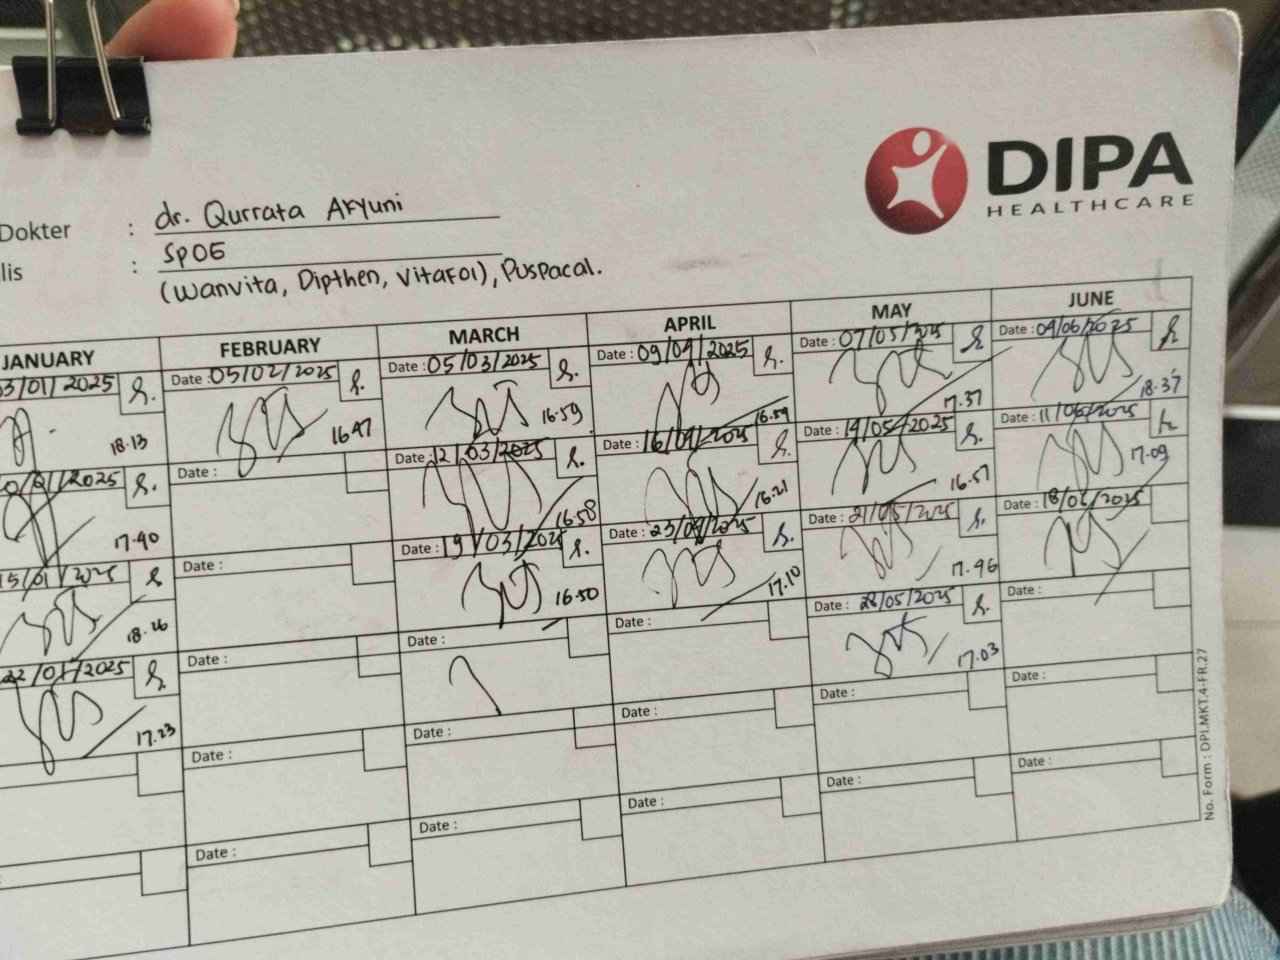 DIPA
HEALTHCARE
Dokter : dr. Qurrata Aryuni
lis : SpOG
(Wanvita, Dipthen, VitaFol), Puspacal.
JANUARY FEBRUARY MARCH APRIL MAY JUNE
3/01/2025 Date : 05/02/2025 Date : 05/03/2025 Date : 09/04/2025 Date : 07/05/2025 Date : 04/06/2025
18.13 16.47 16.59 16.59 17.37 18.37
0/01/2025 Date : Date : 12/03/2025 16/04/2025 Date : 14/05/2025 Date : 11/06/2025
17.40 16.58 16.21 16.57 17.09
15/01/2025 Date : Date : 19/03/2025 Date : 23/04/2025 Date : 21/05/2025 Date : 18/06/2025
18.26 16.50 17.10 17.46
22/01/2025 Date : Date : Date : Date : 28/05/2025 Date :
17.23 17.03
Date : Date : Date : Date : Date :
Date : Date : Date : Date : Date :
No. Form : DPI.MKT.4-FR.27